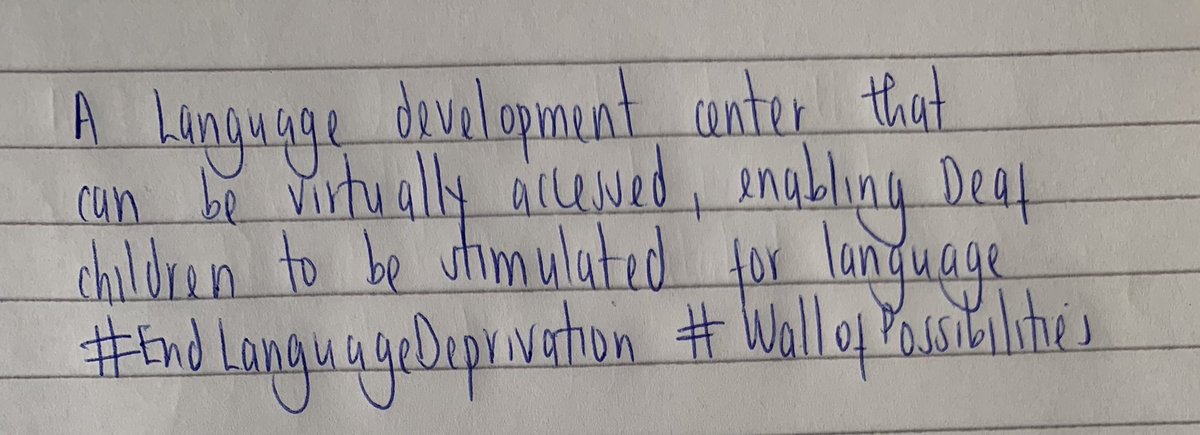 A Language development center that
can be virtually accessed, enabling Deaf
children to be stimulated for language
#EndLanguageDeprivation #WallofPossibilities